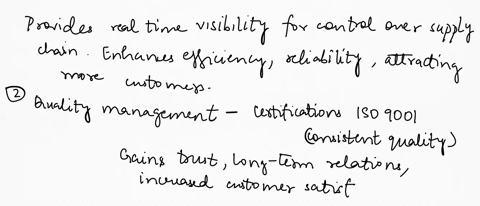 Provides real time visibility for control over supply
chain. Enhances efficiency, reliability, attracting
more customers.
② Quality management – Certifications ISO 9001
(consistent quality)
Gains trust, long-term relations,
increased customer satisf